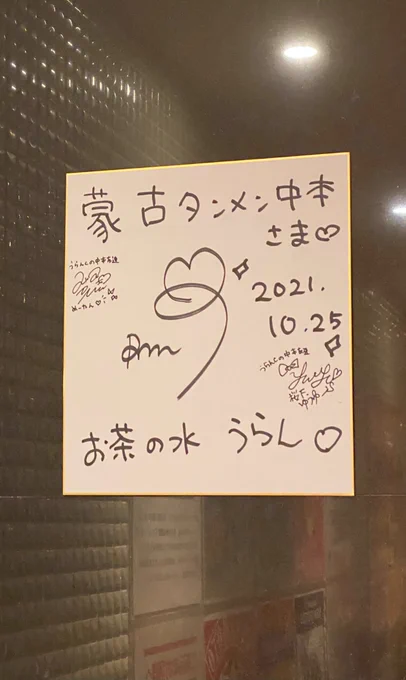 蒙古タンメン中本
さま♡
うらんの中本友達
めーたん♡
2021.
10.25
うらんの中本友達
ゆゆ
お茶の水 うらん♡